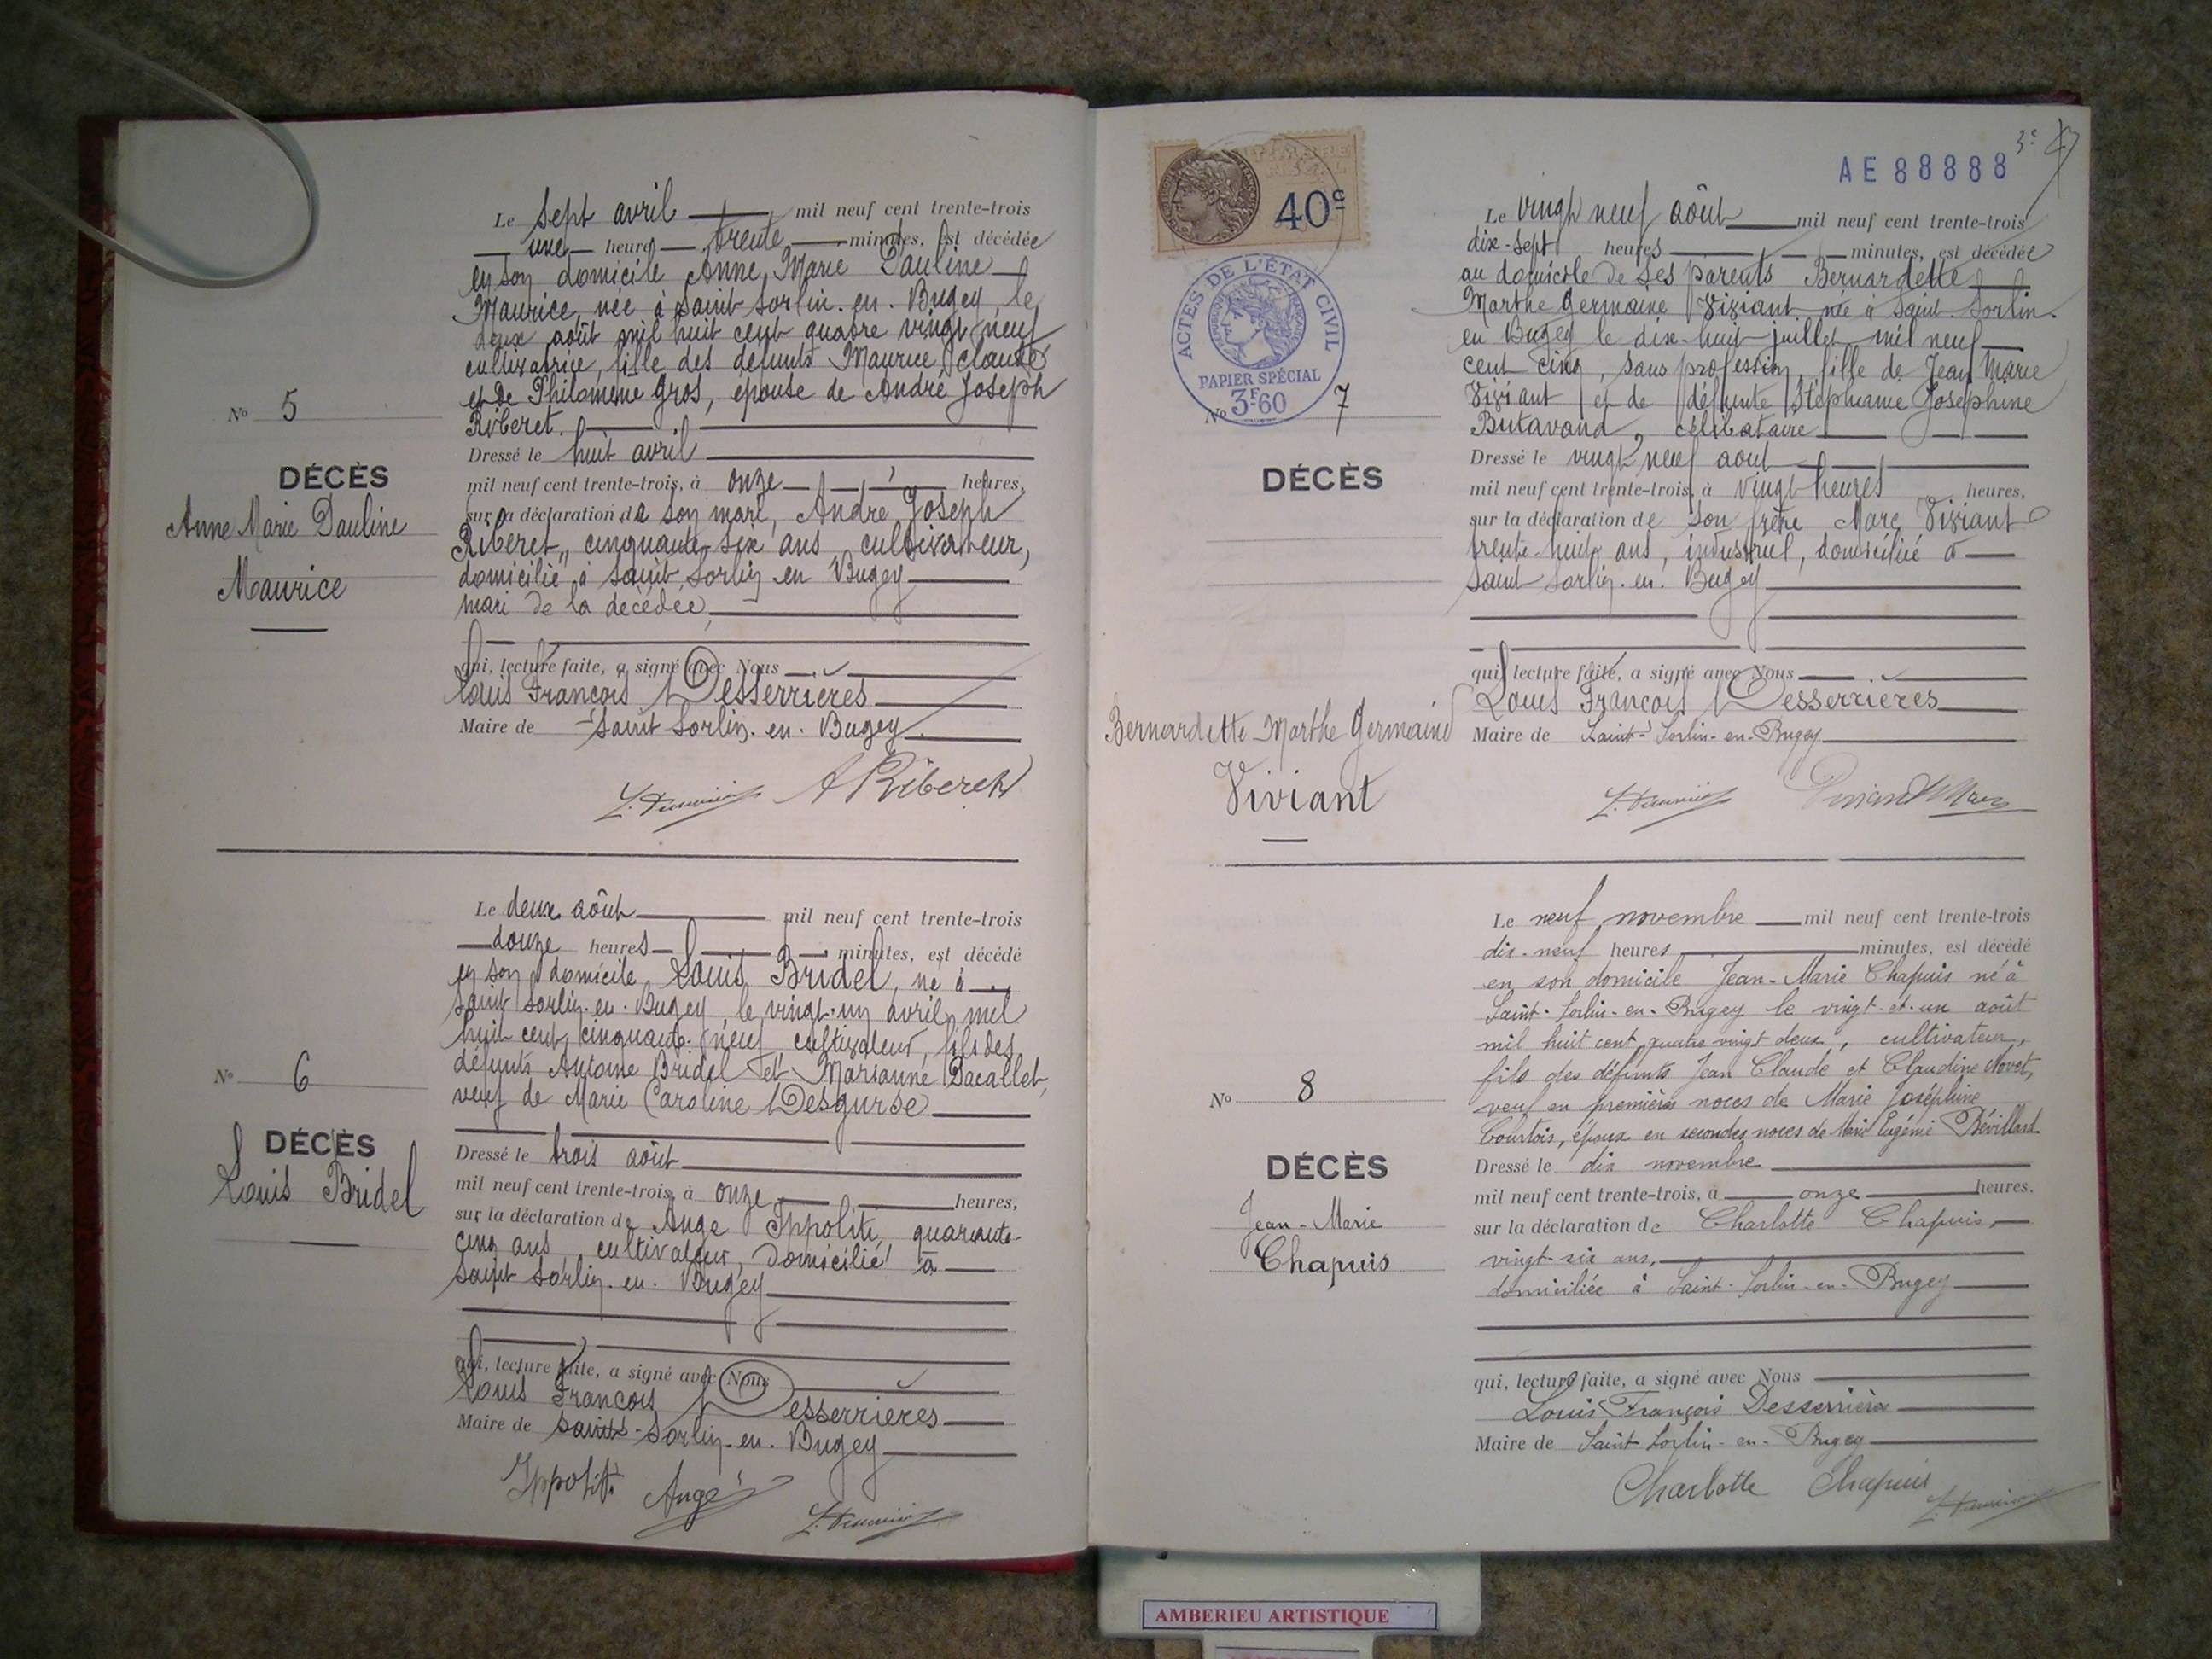 Le sept avril mil neuf cent trente-trois
une heure trente minutes, est décédée
en son domicile Anne Marie Pauline
Maurice, née à Saint Sorlin. en. Bugey, le
deux août mil huit cent quatre vingt neuf
cultivatrice, fille des défunts Maurice Claude
et de Philomène Gros, épouse de André Joseph
Riberet.
Nº 5
DÉCÈS
Anne Marie Pauline
Maurice
Dressé le huit avril
mil neuf cent trente-trois, à onze heures,
sur la déclaration de son mari, André Joseph
Riberet, cinquante-six ans, cultivateur,
domicilié à Saint Sorlin en Bugey
mari de la décédée,
qui, lecture faite, a signé avec Nous
Louis François Desserrières
Maire de Saint Sorlin. en. Bugey
A Riberet
Le deux août mil neuf cent trente-trois
douze heures minutes, est décédé
en son domicile Louis Bridel, né à
Saint Sorlin. en. Bugey, le vingt-un avril mil
huit cent cinquante-neuf cultivateur, fils des
défunts Antoine Bridel et Marianne Bacallet,
veuf de Marie Caroline Desgurse
Nº 6
DÉCÈS
Louis Bridel
Dressé le trois août
mil neuf cent trente-trois, à onze heures,
sur la déclaration de Ange Ippoliti, quarante-
cinq ans, cultivateur, domicilié à
Saint Sorlin. en. Bugey
qui, lecture faite, a signé avec Nous
Louis François Desserrières
Maire de Saint-Sorlin. en. Bugey
Ippoliti Ange
40c
ACTES DE L'ÉTAT CIVIL
PAPIER SPÉCIAL
3F60
AE 88888
3e
Le vingt neuf août mil neuf cent trente-trois
dix-sept heures minutes, est décédée
au domicile de ses parents Bernardette
Marthe Germaine Viviant née à Saint-Sorlin.
en Bugey le dix-huit juillet mil neuf
cent cinq, sans profession, fille de Jean Marie
Viviant et de défunte Stéphanie Joséphine
Butavand, célibataire
Nº 7
DÉCÈS
Bernardette Marthe Germaine
Viviant
Dressé le vingt neuf aout
mil neuf cent trente-trois, à vingt heures heures,
sur la déclaration de son frère Marc Viviant
trente-huit ans, industriel, domicilié à
Saint Sorlin. en. Bugey
qui, lecture faite, a signé avec Nous
Louis François Desserrières
Maire de Saint-Sorlin-en-Bugey
Viviant Marc
Le neuf novembre mil neuf cent trente-trois
dix-neuf heures minutes, est décédé
en son domicile Jean-Marie Chapuis né à
Saint-Sorlin-en-Bugey le vingt-et-un août
mil huit cent quatre vingt deux, cultivateur,
fils des défunts Jean Claude et Claudine Novet,
veuf en premières noces de Marie Joséphine
Courtois, époux en secondes noces de Marie Eugénie Bévillard
Nº 8
DÉCÈS
Jean-Marie
Chapuis
Dressé le dix novembre
mil neuf cent trente-trois, à onze heures.
sur la déclaration de Charlotte Chapuis,
vingt-six ans,
domiciliée à Saint-Sorlin-en-Bugey
qui, lecture faite, a signé avec Nous
Louis François Desserrière
Maire de Saint-Sorlin-en-Bugey
Charlotte Chapuis
AMBERIEU ARTISTIQUE